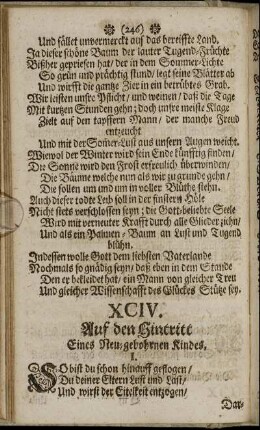 (246)
Und fället unvermerckt auf das bereiffte Land.
Ja dieser schöne Baum der lauter Tugend-Früchte
Bißher gepriesen hat/ der in dem Sommer-Lichte
So grün und prächtig stund/ legt seine Blätter ab
Und wirfft die gantze Zier in ein betrübtes Grab.
Wir leisten unsre Pflicht/ und weinen/ daß die Tage
Mit kurtzen Stunden gehn/ doch unsre meiste Klage
Zielt auf den tapffern Mann/ der manche Freud
entzeucht
Und mit der Sonner-Lust aus unsern Augen weicht.
Wiewol der Winter wird sein Ende künfftig finden/
Die Sonne wird den Frost erfreulich überwinden/
Die Bäume welche nun als wir zu grunde gehn/
Die sollen um und um in voller Blüthe stehn.
Auch dieser todte Leib soll in der finstern Höle
Nicht stets verschlossen seyn; die Gott-beliebte Seele
Wird mit verneuter Krafft durch alle Glieder ziehn/
Und als ein Palmen-Baum an Lust und Tugend
blühn.
Indessen wolle Gott dem liebsten Vaterlande
Nochmals so gnädig seyn/ daß eben in dem Stande
Den er bekleidet hat/ ein Mann von gleicher Treu
Und gleicher Wissenschafft des Glückes Stütze sey.
XCIV.
Auf den Hintritt
Eines Neu-gebohrnen Kindes.
I.
SO bist du schon hinauff geflogen/
Du deiner Eltern Lust und Lust/
Und wirst der Eitelkeit entzogen/
Dar-